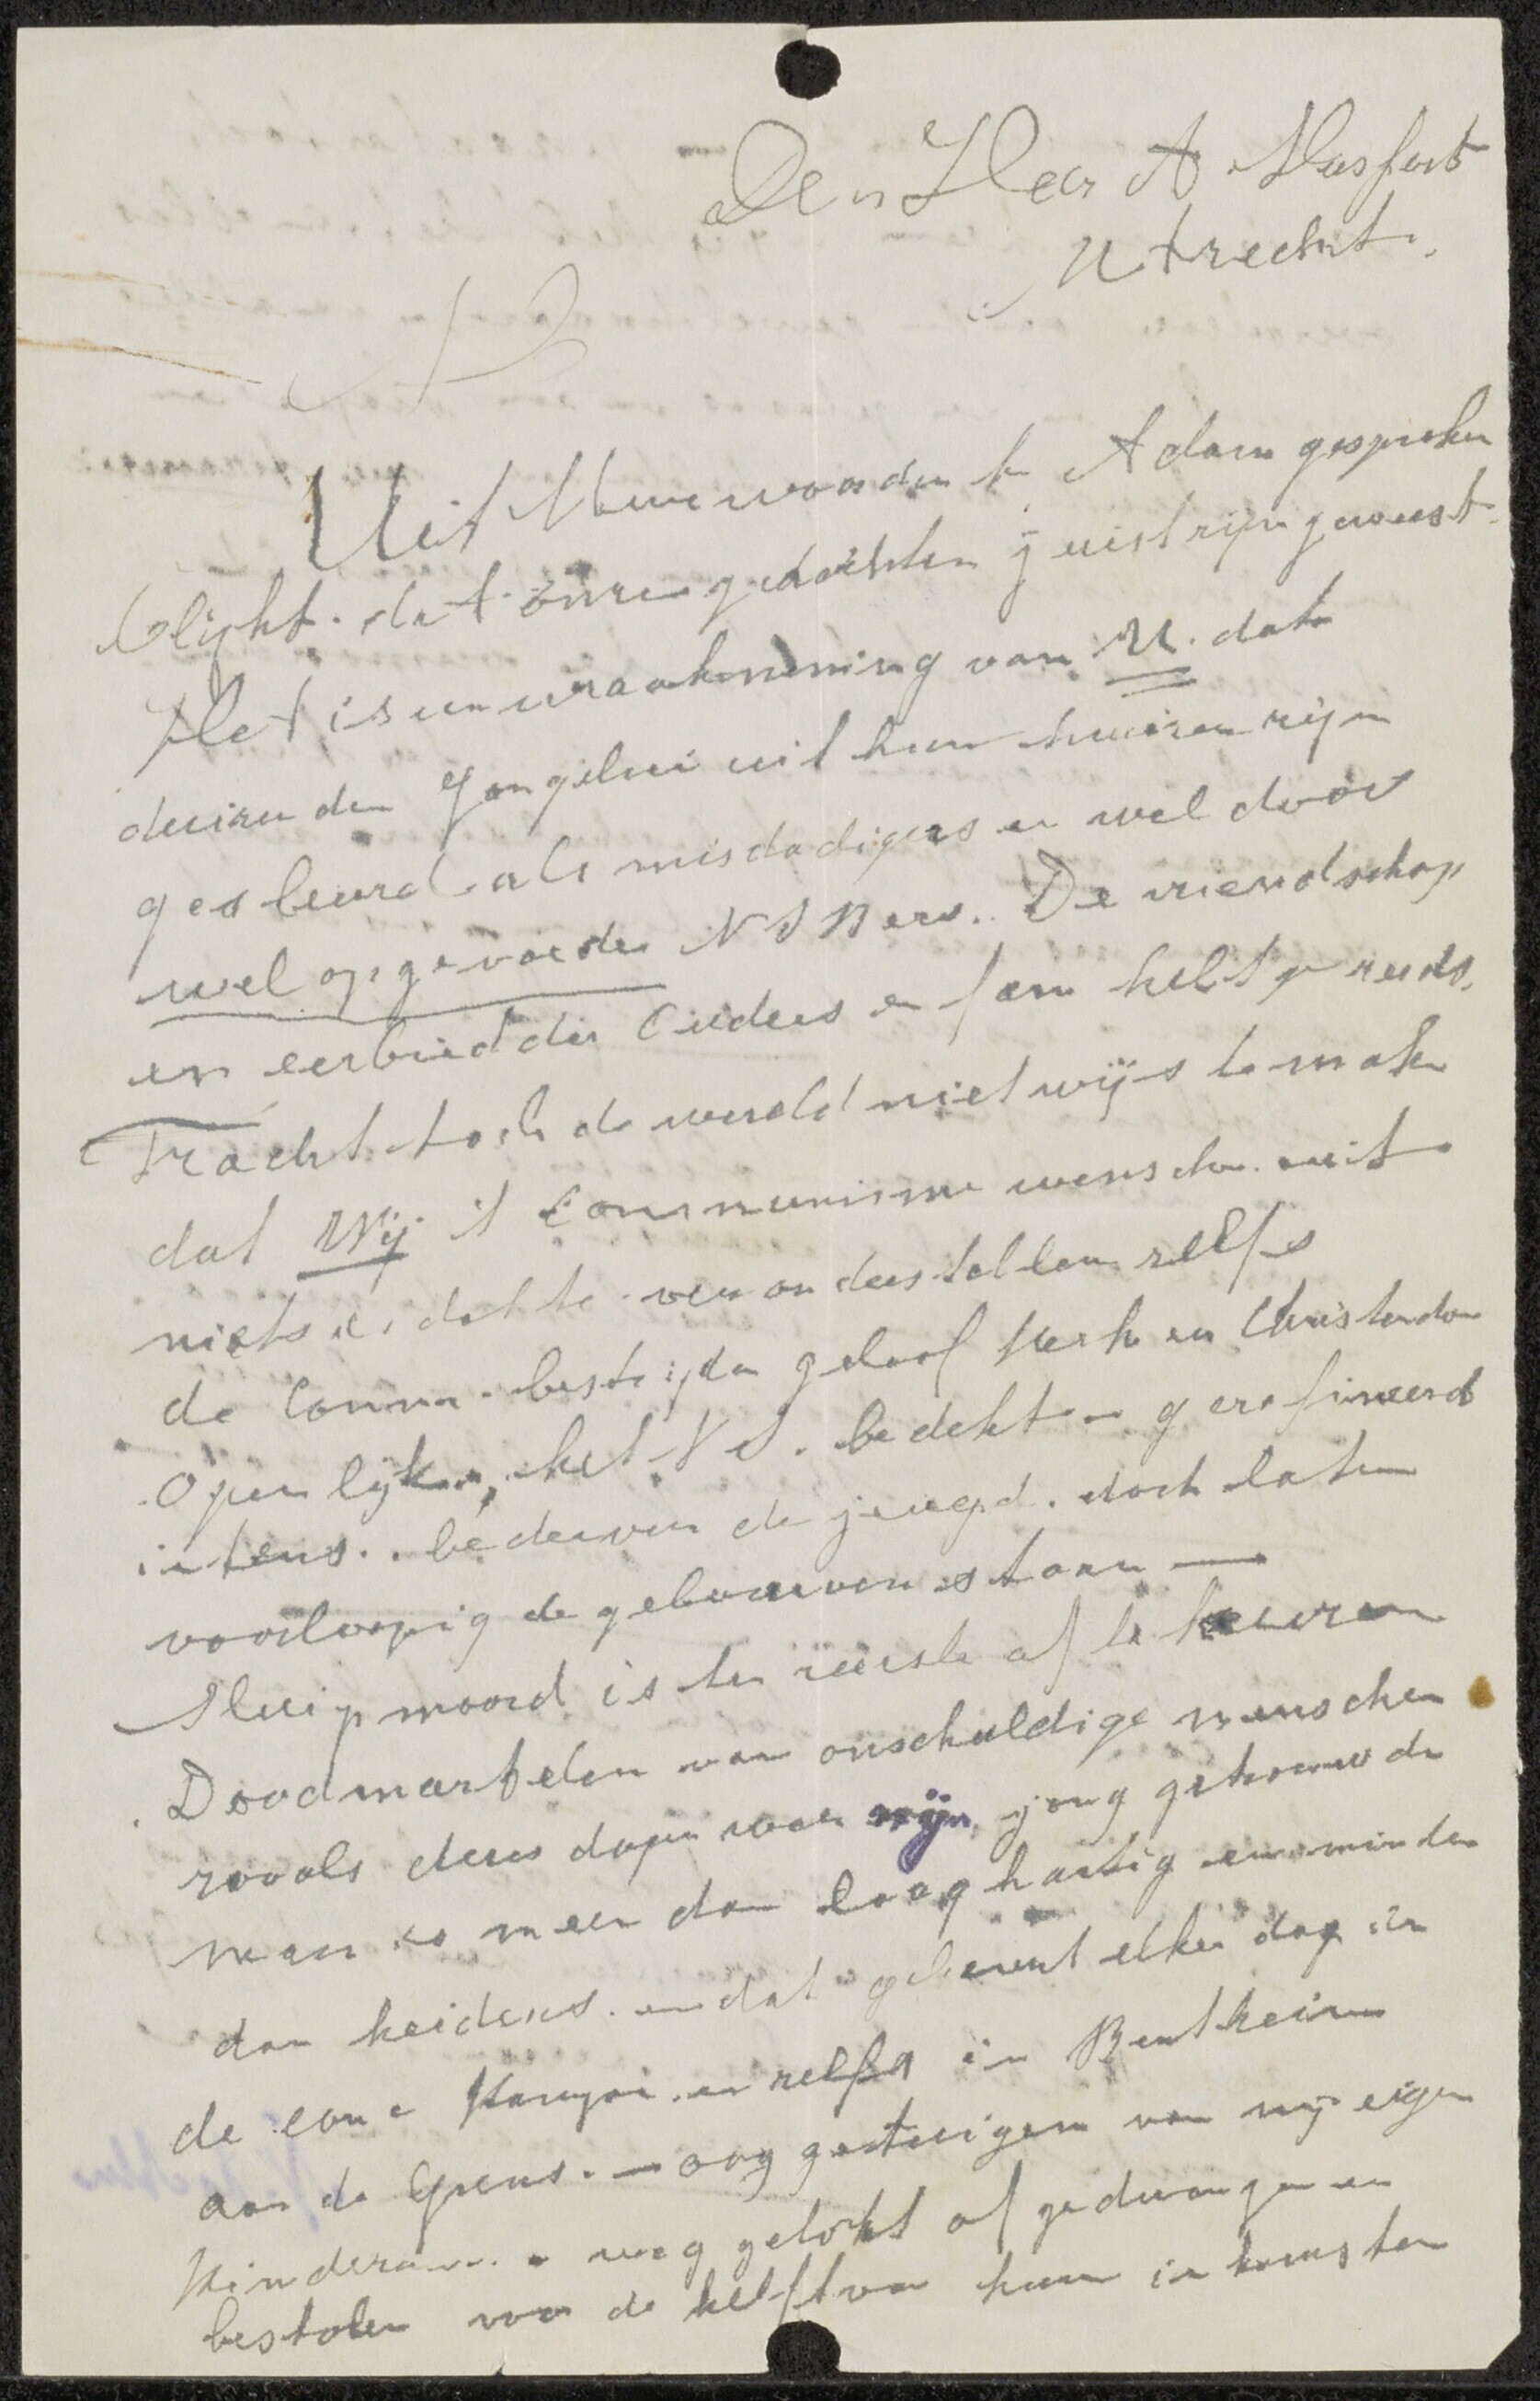 Den Heer A Musfert
Utrecht.
Uit Uwe woorden te Adam gesproken
blijkt. dat onze gedachten juist zijn geweest.
Het is een wraakneming van U. dat
duizenden Jongelui uit hun huizen zijn
gesleurd als misdadigers en wel door
wel opgevoede N S Bers. De vriendschap
en eerbied der Ouders en fam hebt ge reeds.
Tracht toch de wereld niet wijs te maken
dat Wij 't Communisme wenschen. uit
niets is dat te veronderstellen zelfs
de Comm. bestrijden geloof Kerk en Christendom
openlijk., het N S. bedekt – geraffineerd
intens.. bederven de jeugd. doch laten
voorloopig de gebouwen staan —
Sluipmoord is ten zeerste af te keuren
Doodmartelen van onschuldige menschen
zooals dezer dagen van mijn jong getrouwde
man is meer dan laaghartig en minder
dan heidens. en dat gebeurt elken dag in
de conc Kampen en zelfs in Bentheim
aan de Grens. – ooggetuigen van mijn eigen
Kinderen. weggelokt of gedwongen en
bestolen voor de helft van hun inkomsten